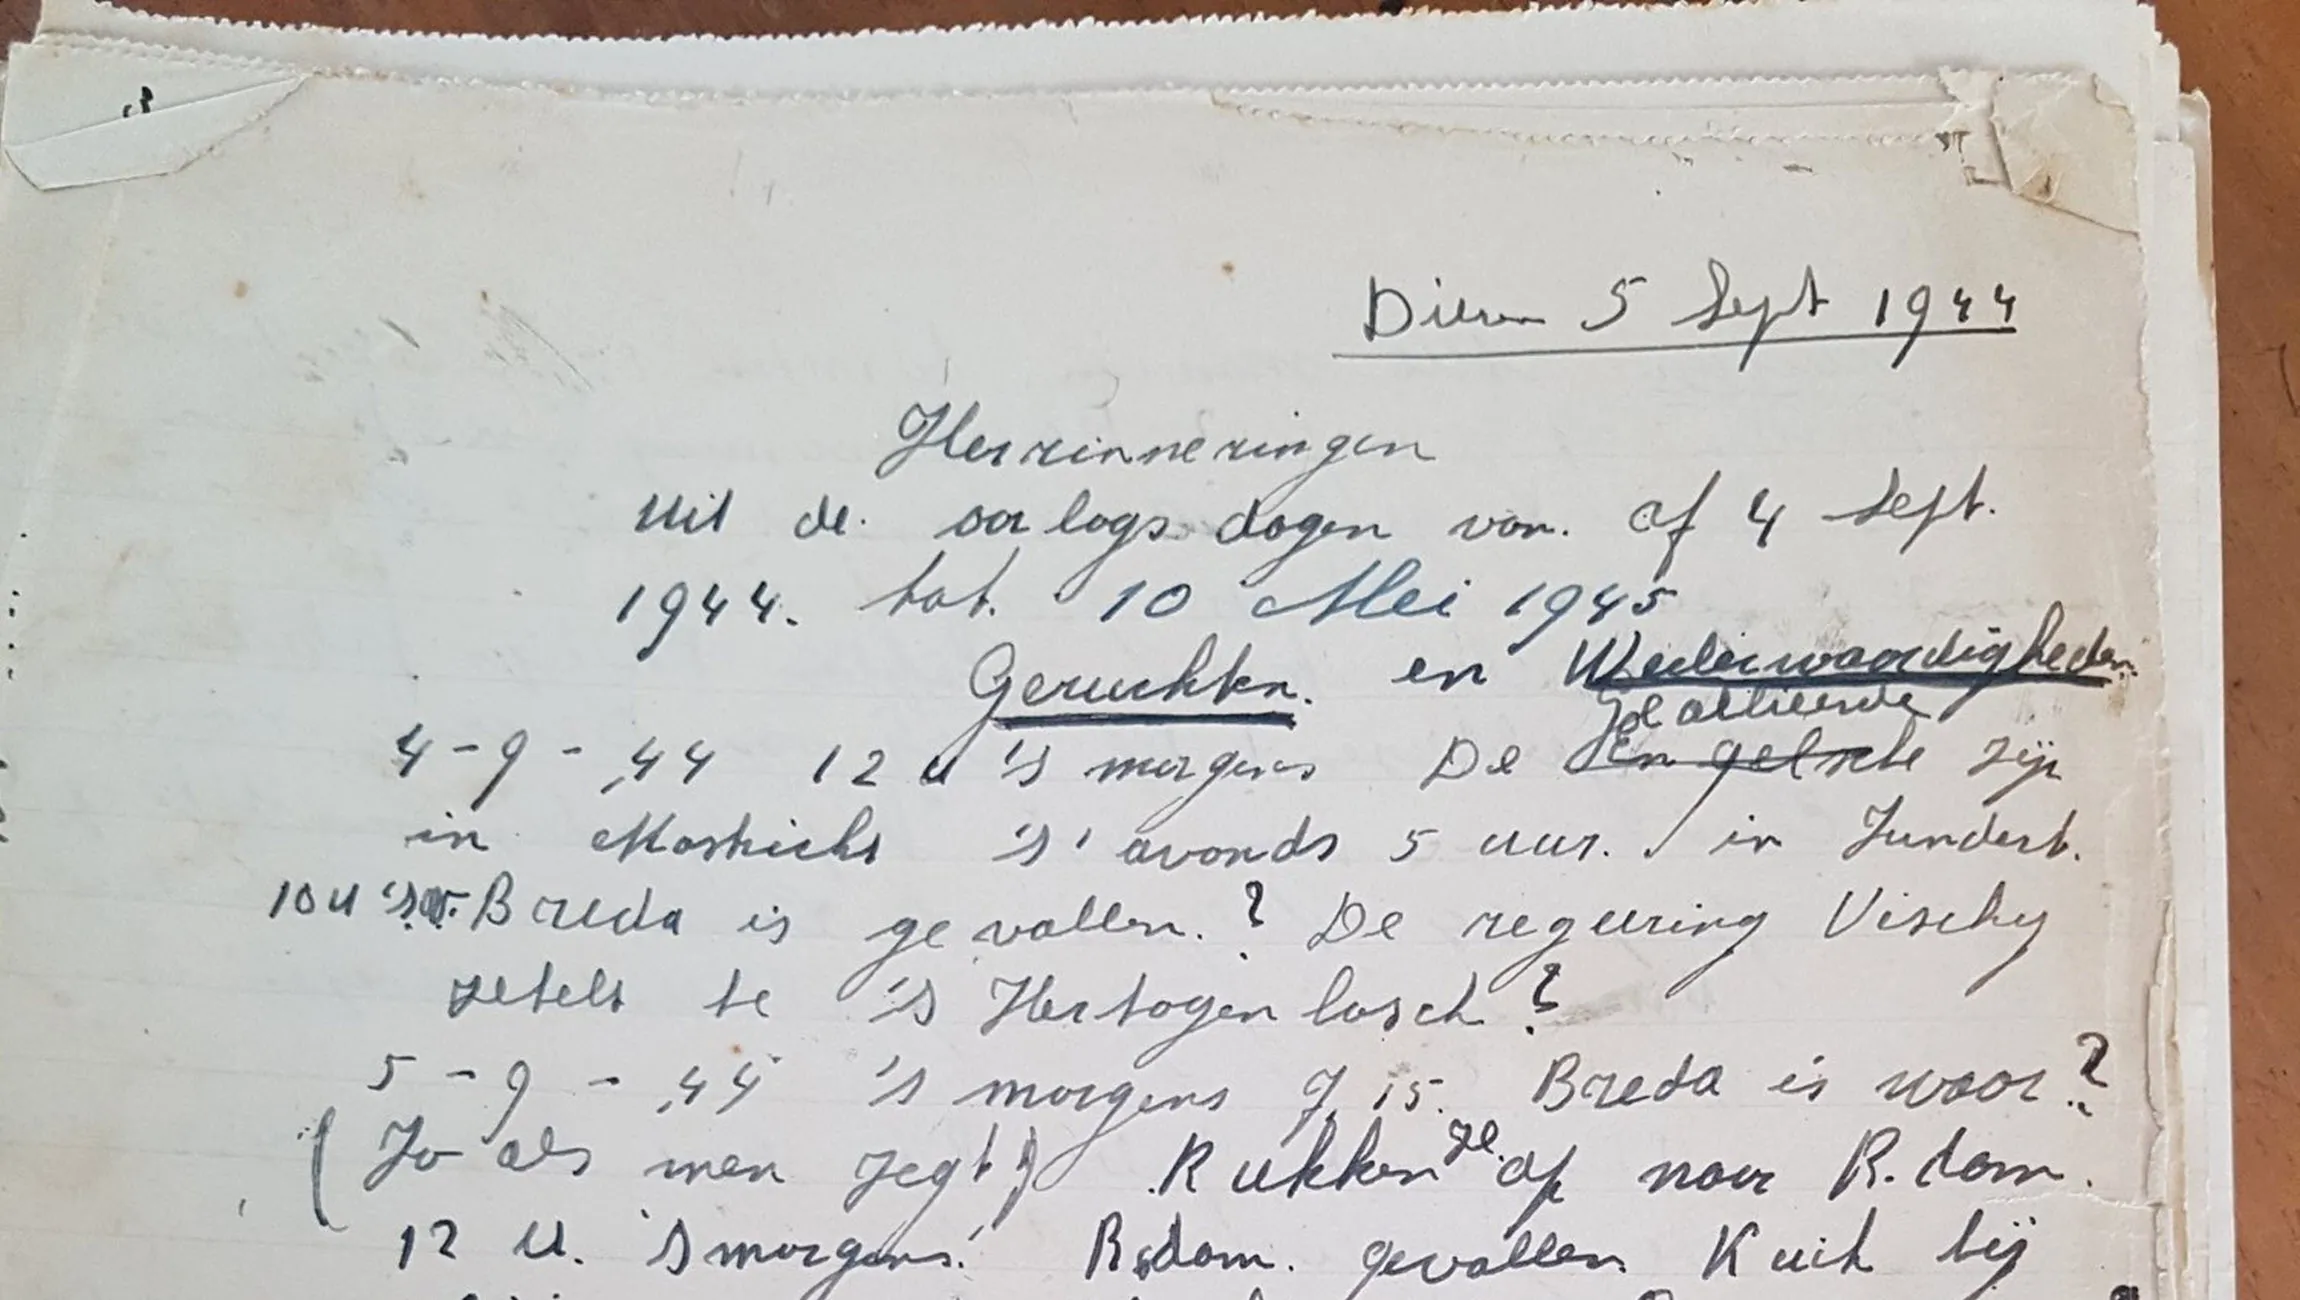 Dieren 5 Sept 1944
Herrinneringen
Uit de. oorlogs dagen van. af 4 Sept.
1944. tot. 10 Mei 1945
Geruchten. en Wederwaardigheden.
Gealieerde
4-9-,44 12 u 's morgens De Engelsche zijn
in Mastricht 's' avonds 5 uur. in Zundert.
10 u 's.av. Breda is gevallen.? De regeering Vischy
zetelt te 's Hertogenbosch?
5-9-,44 's morgens 7,15. Breda is waar?
(Zo als men zegt) Rukken ze op naar R.dam.
12 u. 's morgens. R.dam. gevallen. Kuik bij